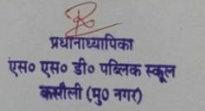 प्रधानाध्यापिका
एस० एस० डी० पब्लिक स्कूल
कसौली (मु० नगर)